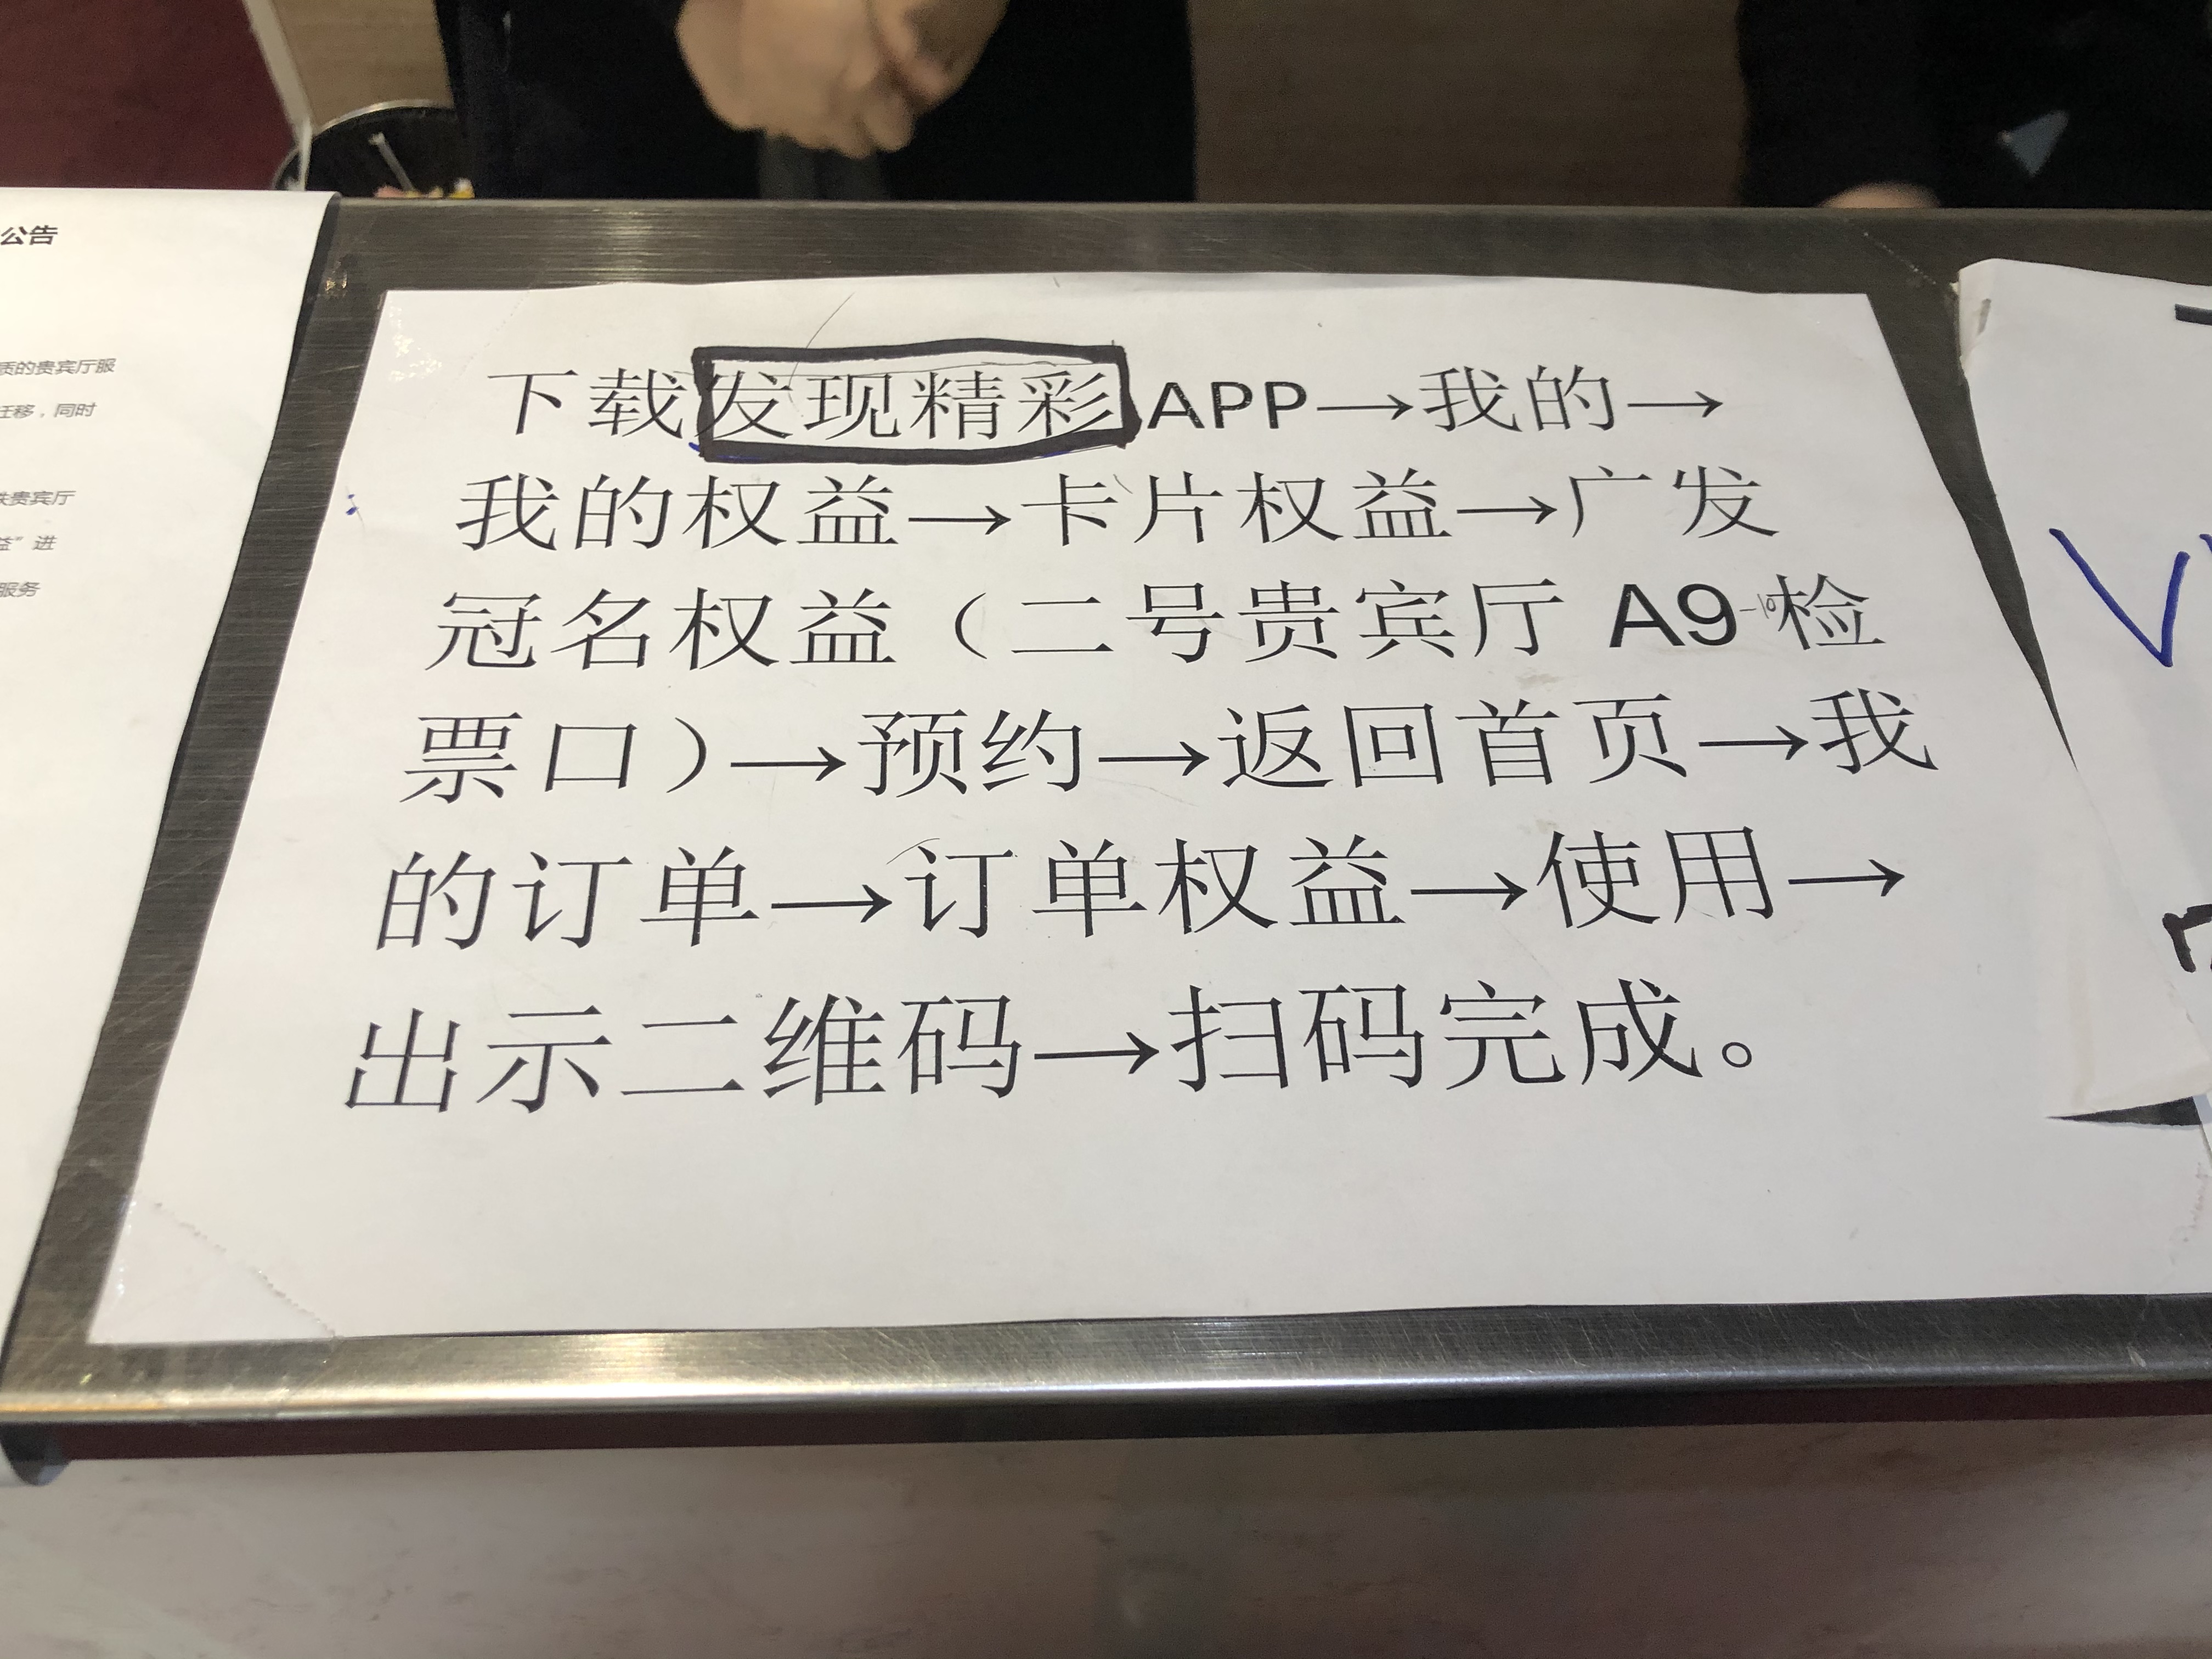 公告
质的贵宾厅服
迁移，同时
贵宾厅
益”进
服务
下载发现精彩APP→我的→
我的权益→卡片权益→广发
冠名权益（二号贵宾厅 A9-10检
票口）→预约→返回首页→我
的订单→订单权益→使用→
出示二维码→扫码完成。
V